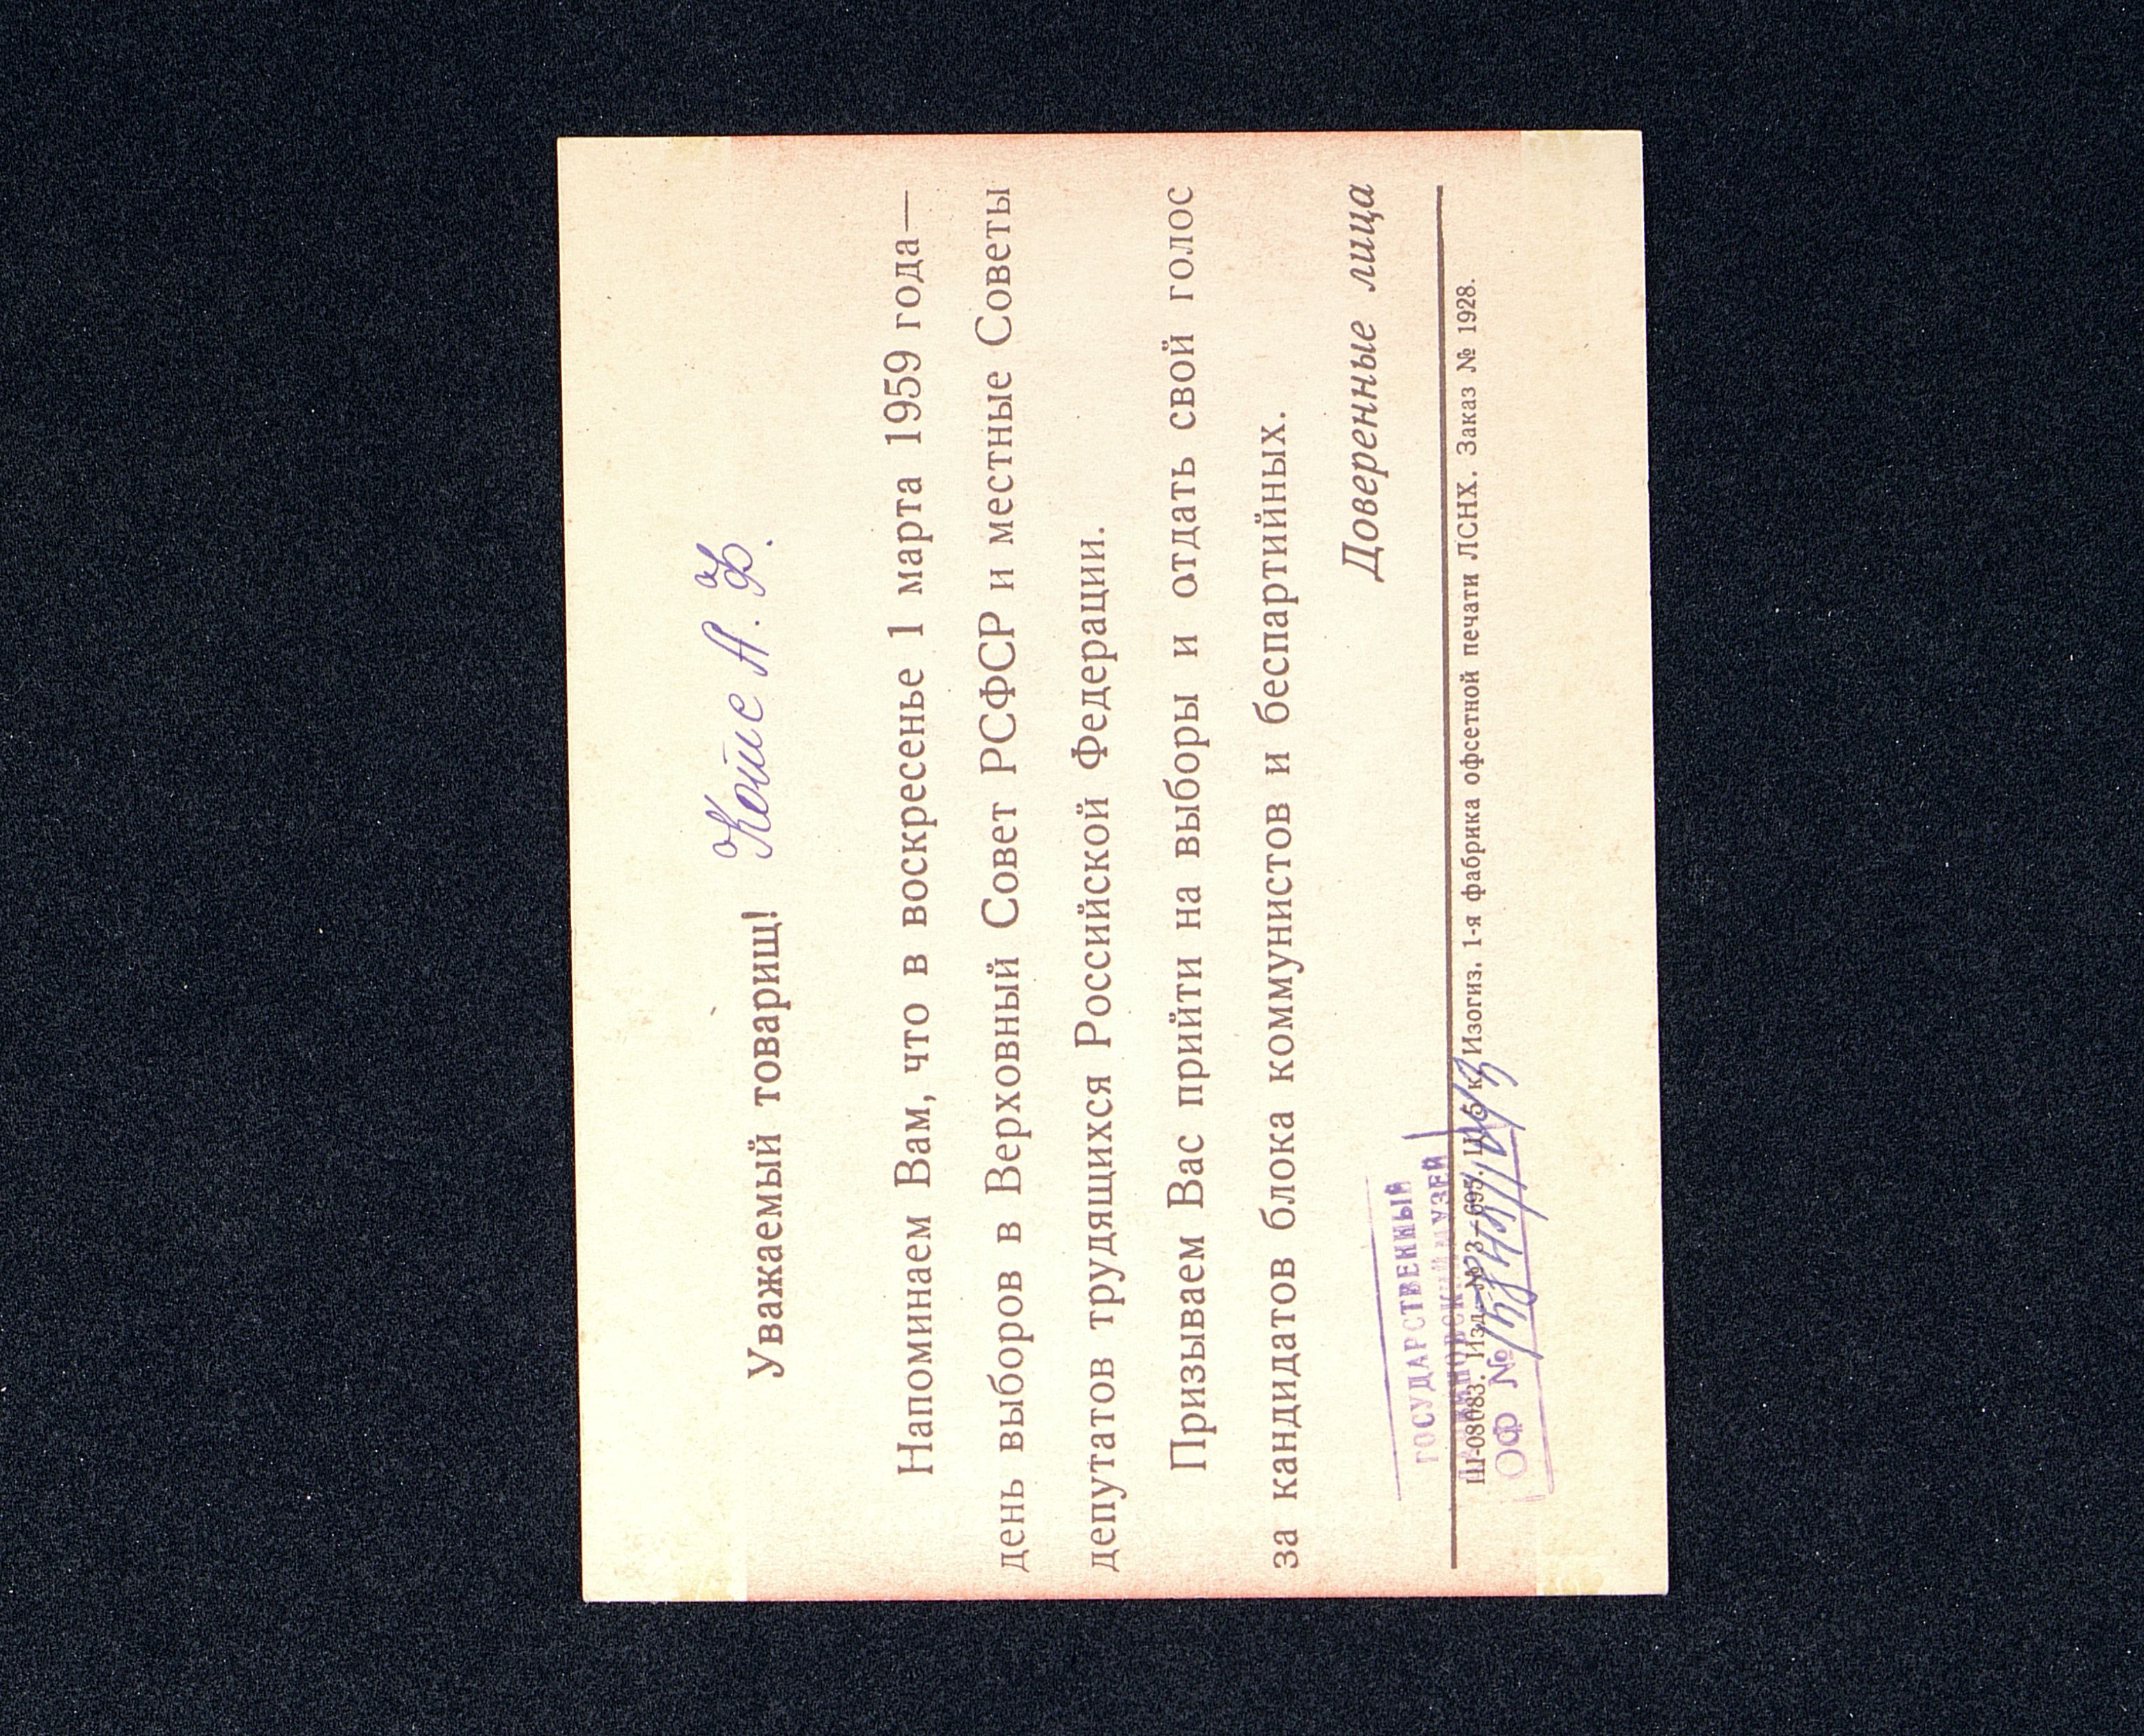 Уважаемый товарищ! Койс А. Ф.
Напоминаем Вам, что в воскресенье 1 марта 1959 года—
день выборов в Верховный Совет РСФСР и местные Советы
депутатов трудящихся Российской Федерации.
Призываем Вас прийти на выборы и отдать свой голос
за кандидатов блока коммунистов и беспартийных.
Доверенные лица
ГОСУДАРСТВЕННЫЙ
МУЗЕЙ
Ш-08083. Изд. № 3—695. Изогиз. 1-я фабрика офсетной печати ЛСНХ. Заказ № 1928.
ОФ №